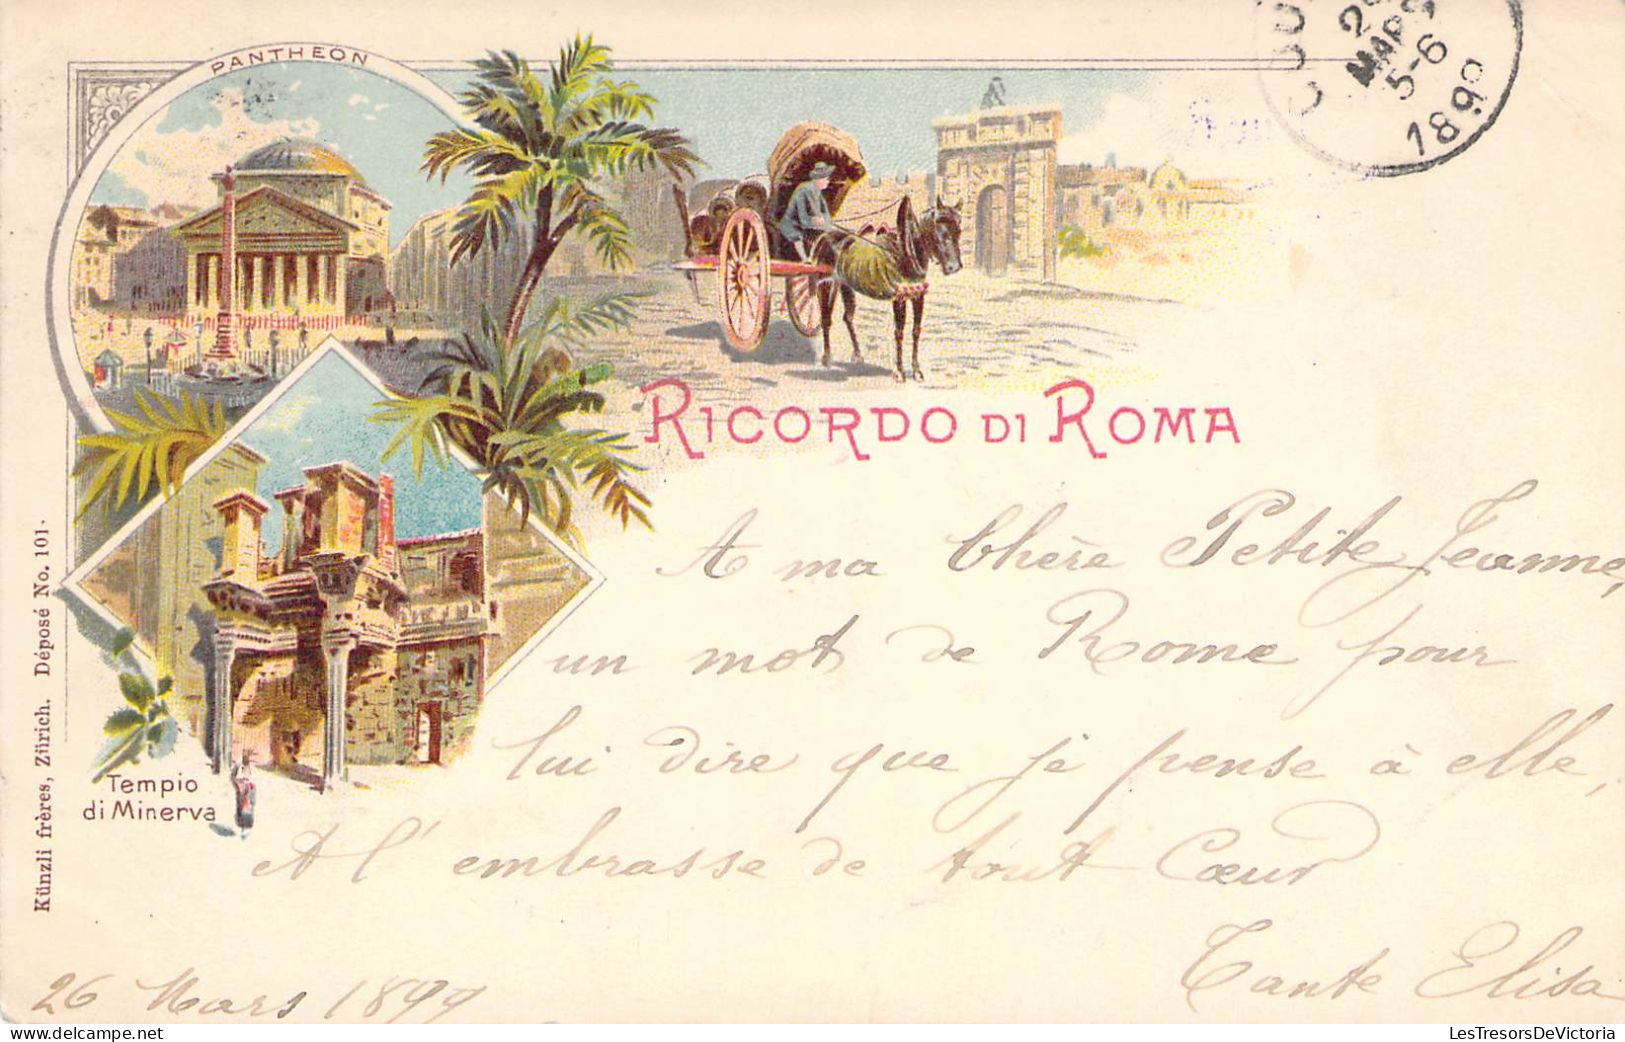 PANTHEON
RICORDO DI ROMA
Tempio
di Minerva
Künzli frères, Zürich. Déposé No. 101.
MARS
5-6
1899
A ma Chère Petite Jeanne,
un mot de Rome pour
lui dire que je pense à elle,
et l'embrasse de tout Cœur
Tante Elisa
26 Mars 1899
LesTresorsDeVictoria